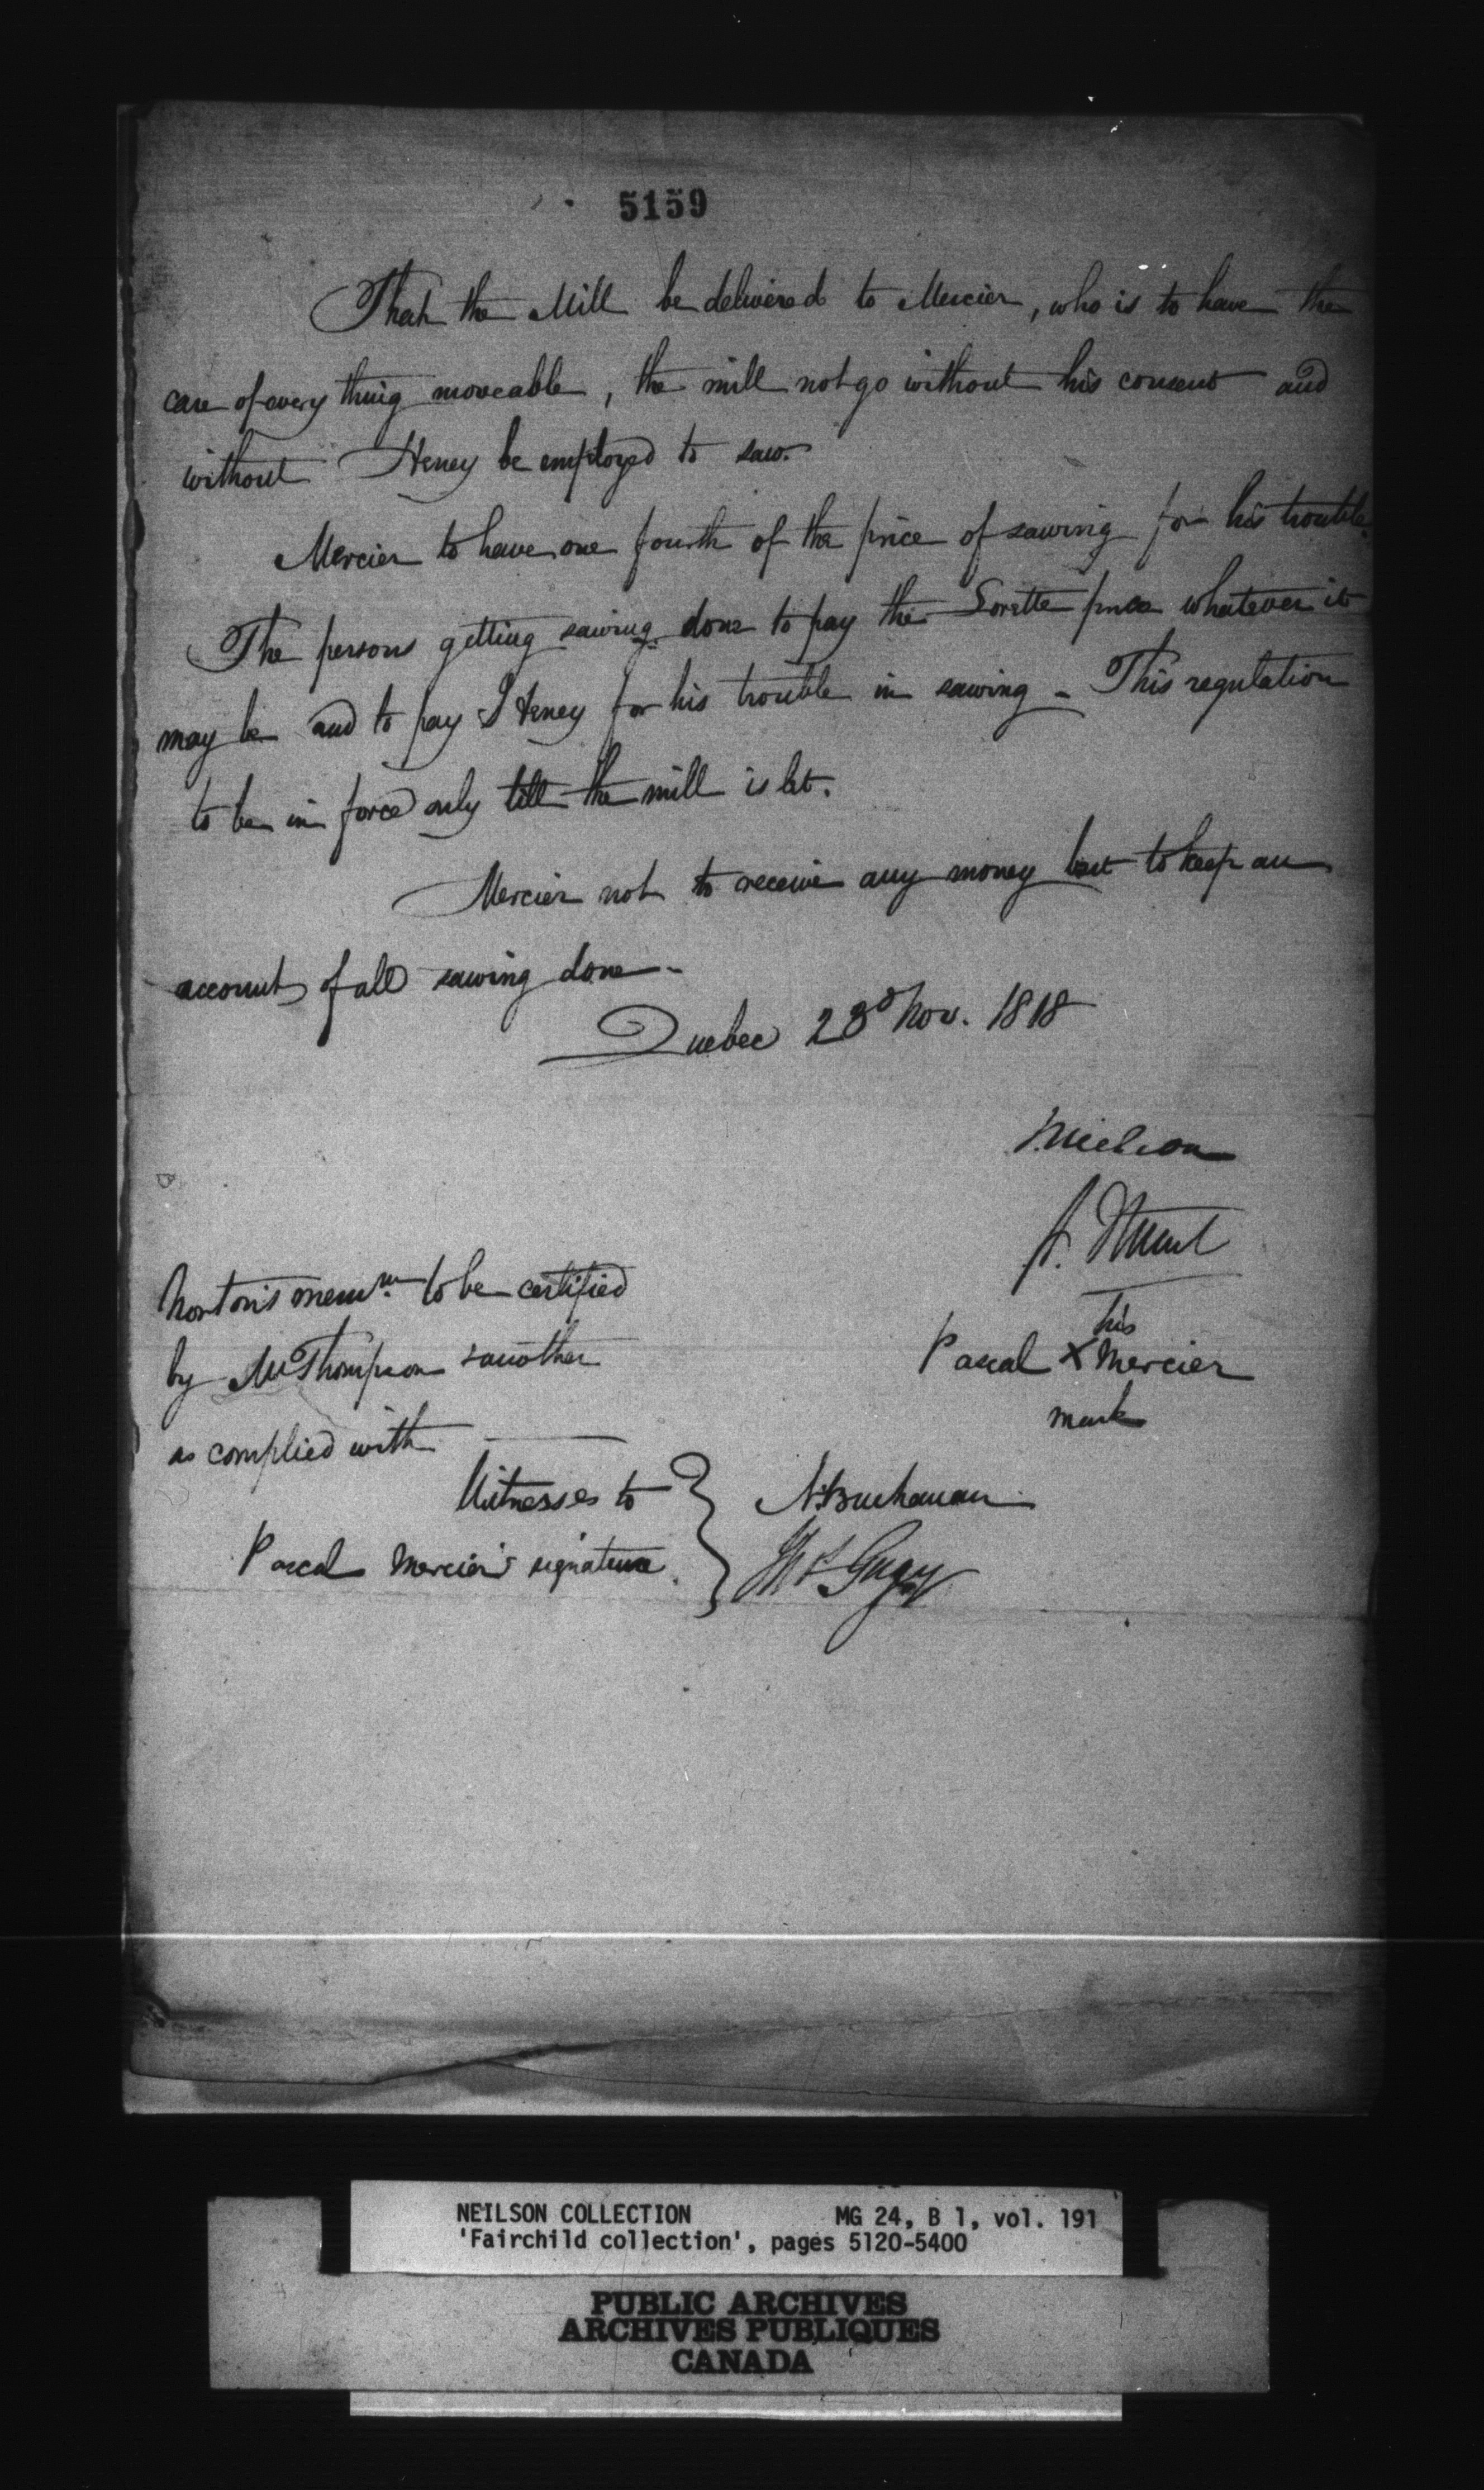 5159
That the Mill be delivered to Mercier, who is to have the
care of every thing moveable, the mill not go without his consent and
without Heney be employed to saw.
Mercier to have one fourth of the price of sawing for his trouble.
The persons getting sawing done to pay the Lorette price whatever it
may be and to pay Heney for his trouble in sawing - This regulation
to be in force only till the mill is let.
Mercier not to receive any money but to keep an
account of all sawing done -
Quebec 23d Nov. 1818
J. Neilson
A. Stuart
Norton's mem. to be certified
by Mr Thompson & another
as complied with
his
Pascal X Mercier
mark
Witnesses to
Pascal Mercier's signature
A. Buchanan
Gugy
NEILSON COLLECTION MG 24, B 1, vol. 191
'Fairchild collection', pages 5120-5400
PUBLIC ARCHIVES
ARCHIVES PUBLIQUES
CANADA